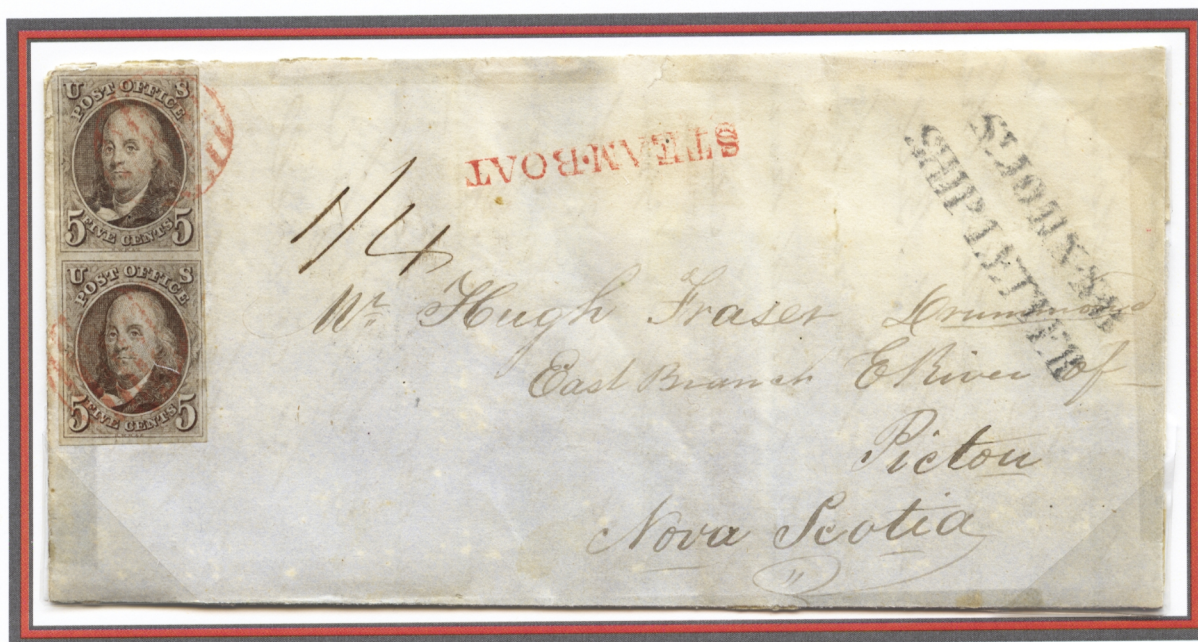 U S
POST OFFICE
5 FIVE CENTS 5
U S
POST OFFICE
5 FIVE CENTS 5
STEAM·BOAT
ST JOHN·N·B·
SHIP LETTER
1/4
Mr. Hugh Fraser Drummond
East Branch E River of
Pictou
Nova Scotia